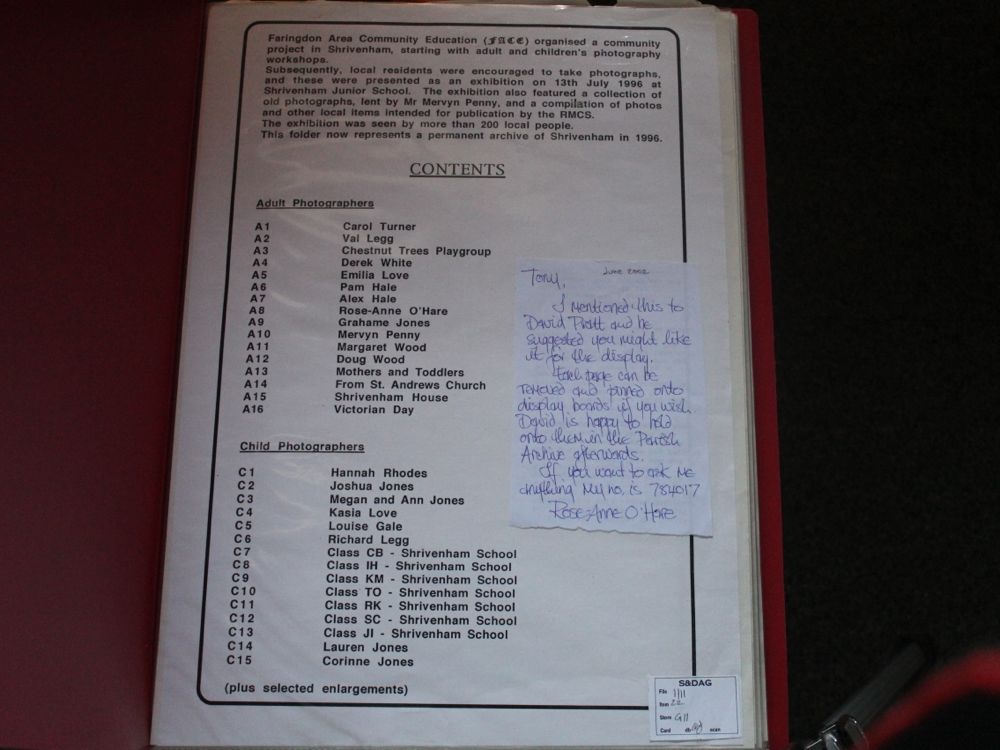 Faringdon Area Community Education (FACE) organised a community
project in Shrivenham, starting with adult and children's photography
workshops.
Subsequently, local residents were encouraged to take photographs,
and these were presented as an exhibition on 13th July 1996 at
Shrivenham Junior School. The exhibition also featured a collection of
old photographs, lent by Mr Mervyn Penny, and a compilation of photos
and other local items intended for publication by the RMCS.
The exhibition was seen by more than 200 local people.
This folder now represents a permanent archive of Shrivenham in 1996.
CONTENTS
Adult Photographers
A1 Carol Turner
A2 Val Legg
A3 Chestnut Trees Playgroup
A4 Derek White
A5 Emilia Love
A6 Pam Hale
A7 Alex Hale
A8 Rose-Anne O'Hare
A9 Grahame Jones
A10 Mervyn Penny
A11 Margaret Wood
A12 Doug Wood
A13 Mothers and Toddlers
A14 From St. Andrews Church
A15 Shrivenham House
A16 Victorian Day
Child Photographers
C1 Hannah Rhodes
C2 Joshua Jones
C3 Megan and Ann Jones
C4 Kasia Love
C5 Louise Gale
C6 Richard Legg
C7 Class CB - Shrivenham School
C8 Class IH - Shrivenham School
C9 Class KM - Shrivenham School
C10 Class TO - Shrivenham School
C11 Class RK - Shrivenham School
C12 Class SC - Shrivenham School
C13 Class JI - Shrivenham School
C14 Lauren Jones
C15 Corinne Jones
(plus selected enlargements)
June 2002
Tony,
I mentioned this to
David Pratt and he
suggested you might like
it for the display.
Each page can be
removed and pinned onto
display boards if you wish
David is happy to hold
onto them in the Parish
Archive afterwards.
If you want to ask me
anything my no. is 784017
Rose-Anne O'Hare
S&DAG
File 1/11
Item 22
Store G11
Card db scan